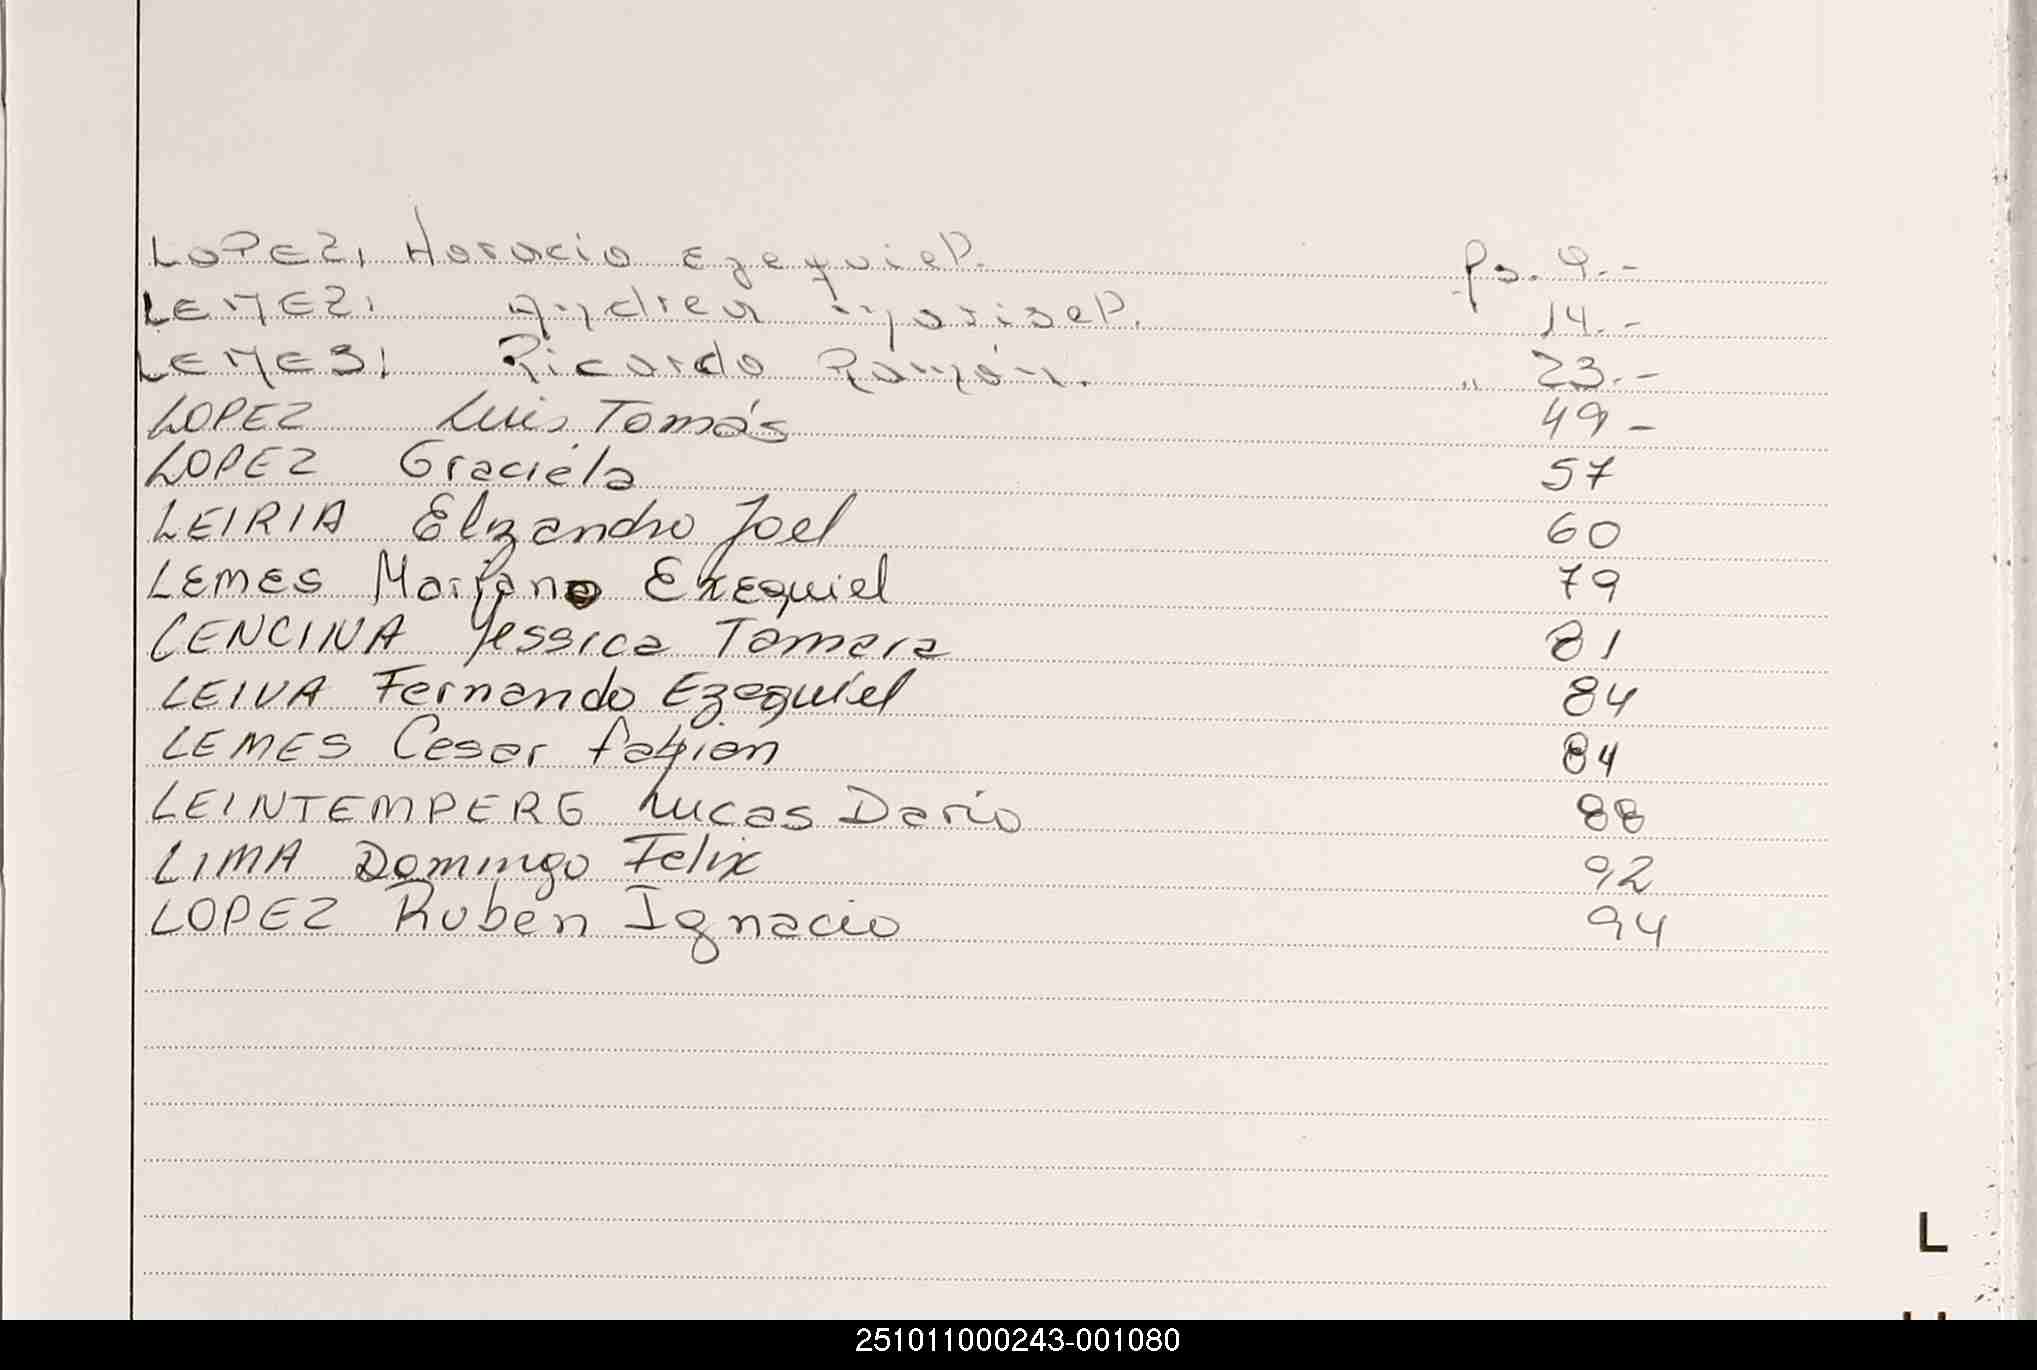 LOPEZ, Horacio Ezequiel. Ps. 9.-
LEMEZ, Andrea Marisel. 14.-
LEMES, Ricardo Ramón. " 23.-
LOPEZ Luis Tomás 49-
LOPEZ Graciela 57
LEIRIA Elzandro Joel 60
LEMES Mariano Exequiel 79
LENCINA Yessica Tamara 81
LEIVA Fernando Ezequiel 84
LEMES Cesar Fabian 84
LEINTEMPERG Lucas Dario 88
LIMA Domingo Felix 92
LOPEZ Ruben Ignacio 94
L
251011000243-001080